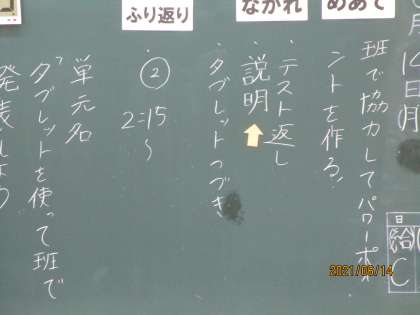 月14日(月
日
給
C
めあて
班で協力してパワーポイ
ントを作る!!
ながれ
・テスト返し
・説明
・タブレットつづき
ふり返り
・②
2:15
～
単元名
"タブレットを使って班で
発表しよう
2021/06/14